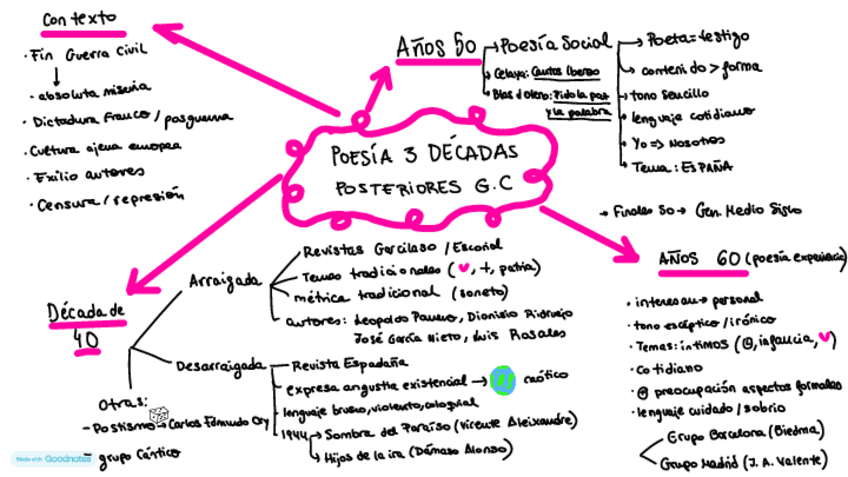 Contexto
· Fin Guerra Civil
· absoluta miseria
· Dictadura Franco / posguerra
· Cultura ajena europea
· Exilio autores
· Censura / represión
POESÍA 3 DÉCADAS
POSTERIORES G.C
AÑOS 50
Poesía Social
Celaya: Cantos Iberos
Blas d Otero: Pido la paz
y la palabra
Poeta = testigo
contenido > forma
tono sencillo
lenguaje cotidiano
Yo => Nosotros
Tema: ESPAÑA
→ Finales 50 → Gen. Medio Siglo
AÑOS 60 (poesía experiencia)
· interesan → personal
· tono escéptico / irónico
· Temas: íntimos (infancia, ♥)
· cotidiano
· preocupación aspectos formales
· lenguaje cuidado / sobrio
Grupo Barcelona (Biedma)
Grupo Madrid (J. A. Valente)
Década de
40
Arraigada
Revistas Garcilaso / Escorial
Temas tradicionales (♥, +, patria)
métrica tradicional (soneto)
autores: Leopoldo Panero, Dionisio Ridruejo
José García Nieto, Luis Rosales
Desarraigada
Revista Espadaña
expresa angustia existencial → caótico
lenguaje brusco, violento, coloquial
1944 → Sombra del Paraíso (Vicente Aleixandre)
Hijos de la ira (Dámaso Alonso)
Otras:
- Postismo → Carlos Edmundo Ory
- grupo Cántico
Made with Goodnotes